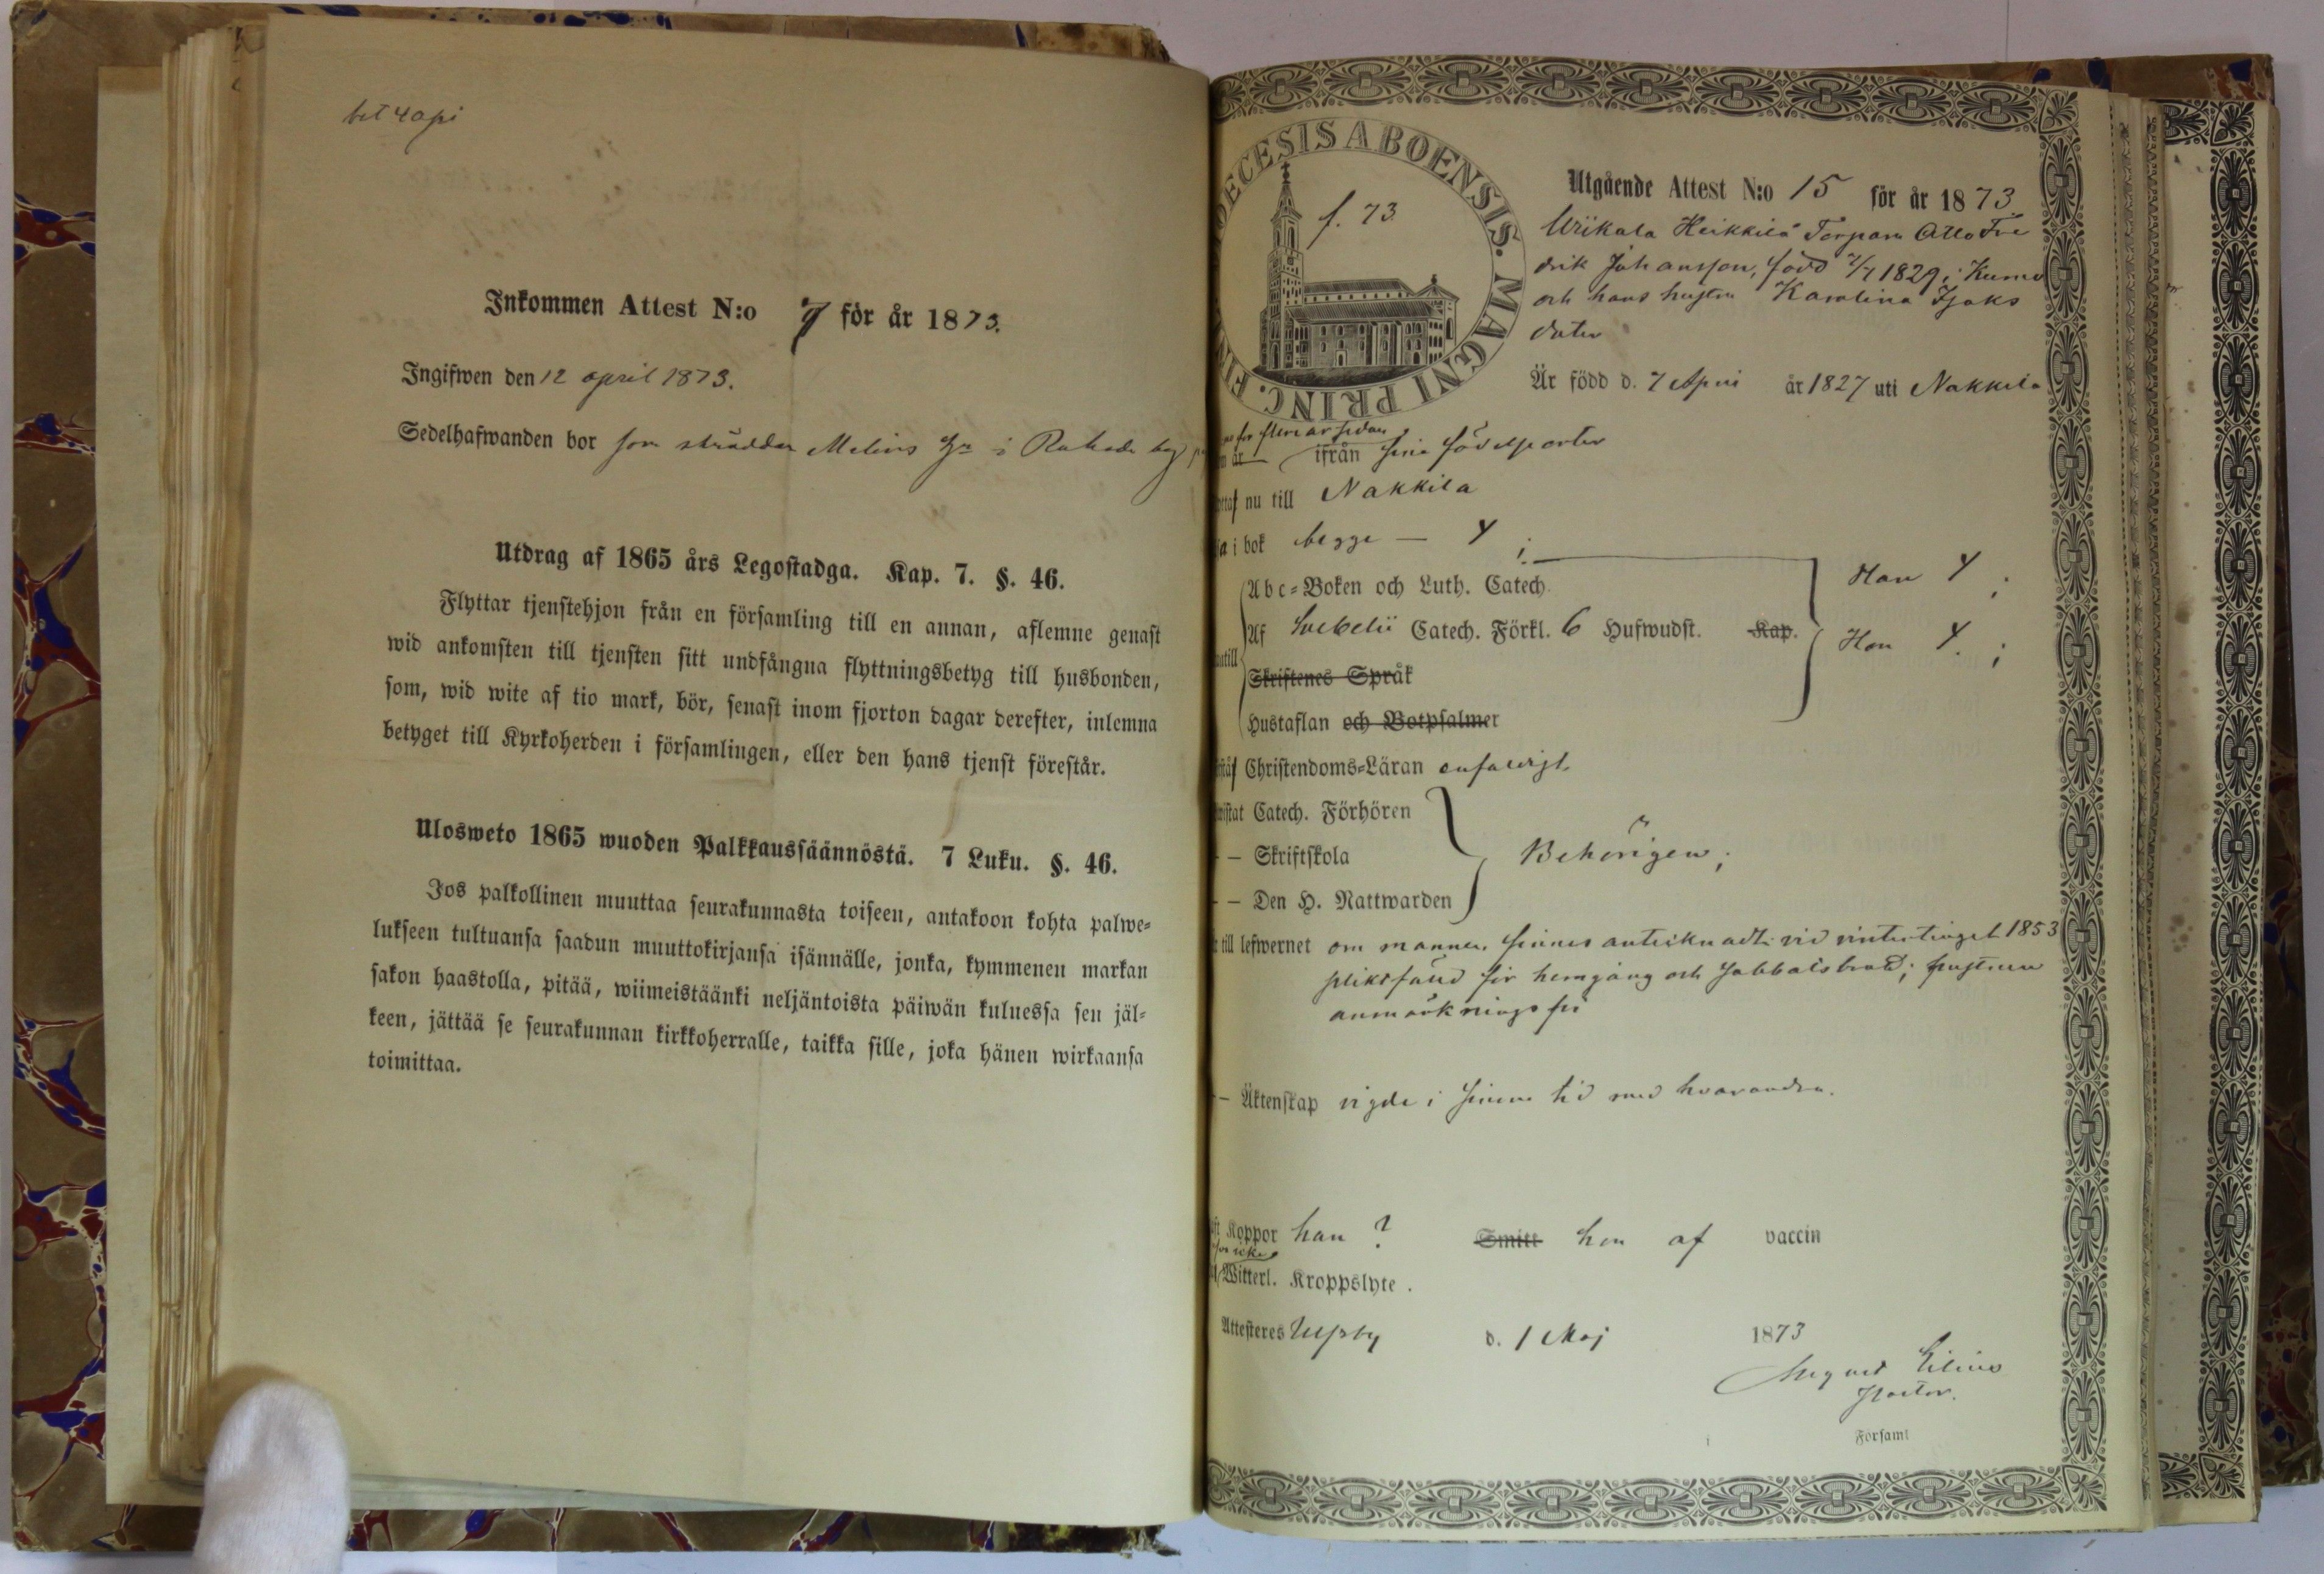 bet 40 pi
Inkommen Attest N:o 7 för år 1873.
Ingifwen den 12 april 1873.
Sedelhafwanden bor som skräddar Melins i by
Utdrag af 1865 års Legostadga. Kap. 7. §. 46.
Flyttar tjenstehjon från en församling till en annan, aflemne genast
wid ankomsten till tjensten sitt undfångna flyttningsbetyg till husbonden,
som, wid wite af tio mark, bör, senast inom fjorton dagar derefter, inlemna
betyget till Kyrkoherden i församlingen, eller den hans tjenst förestår.
Ulosweto 1865 wuoden Palkkaussäännöstä. 7 Luku. §. 46.
Jos palkollinen muuttaa seurakunnasta toiseen, antakoon kohta palwe=
lukseen tultuansa saadun muuttokirjansa isännälle, jonka, kymmenen markan
sakon haastolla, pitää, wiimeistäänki neljäntoista päiwän kuluessa sen jäl=
keen, jättää se seurakunnan kirkkoherralle, taikka sille, joka hänen wirkaansa
toimittaa.
ECESIS ABOENSIS. MAGNI PRINC. FIN
f. 73
Utgående Attest N:o 15 för år 1873
Heikkilä Torparn Otto Fre
drik Johansson, född 2/4 1829 i Kumo
och hans hustru Karolina Isaks
dotter
Är född d. 7 April år 1827 uti Nakkila
för flere år sedan
år ifrån sina födelseorter
nu till Nakkila
i bok begge — 4 ;
Abc=Boken och Luth. Catech.
Han 4 ;
Af Svebelii Catech. Förkl. 6 Hufwudst. Kap.
Hon 4. ;
Skriftenes Språk
Hustaflan och Botpsalmer
Christendoms=Läran enfaldigt.
Catech. Förhören
— Skriftskola
Behörigen;
— Den H. Nattwarden
till lefwernet om mannen finnes antecknadt: vid vintertinget 1853
pliktfälld för hemgång och sabbatsbrott; hustrun
anmärkningsfri
— Äktenskap vigde i sinom tid med hvarandra.
Koppor han ? Smitt hon af vaccin
icke
Witterl. Kroppslyte.
Attesteres Ulfsby d. 1 Maj 1873
Pastor.
i Församl